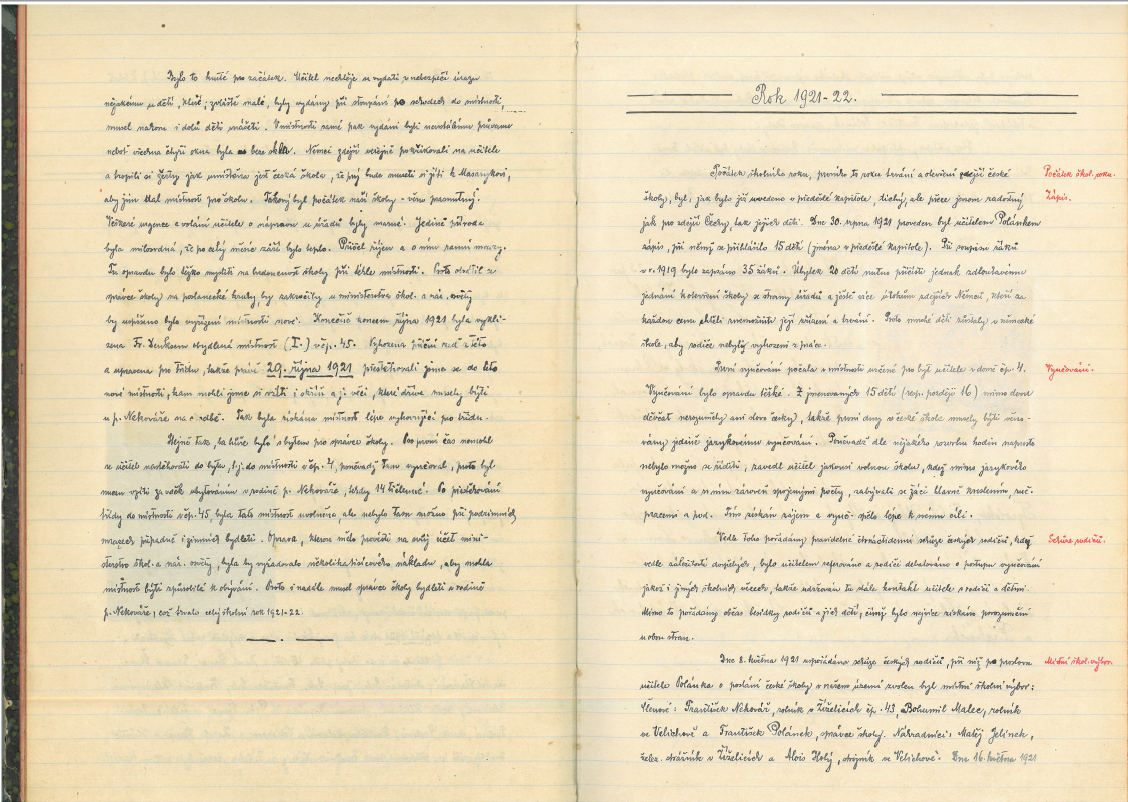 Bylo to kruté pro začátek. Učitel nechtěje se vydati v nebezpečí úrazu
nějakému z dětí, které, zvláště malé, byly vydány při stoupání po schodech do místnosti,
musel nahoru i dolů děti snášeti. V místnosti samé pak vydáni byli neustálému průvanu
neboť všechna čtyři okna byla beze skla. Němci zdejší veřejně pokřikovali na učitele
a tropili si žerty jak umístěna jest česká škola, že prý bude museti si jíti k Masarykovi,
aby jim dal místnost pro školu. Takový byl počátek naší školy - věru památný.
Veškeré urgence a volání učitele o nápravu u úřadů byly marné. Jedině příroda
byla milosrdná, že po celý měsíc září bylo teplo. Přišel říjen a s ním ranní mrazy.
Tu opravdu bylo těžko mysliti na budoucnost školy při téhle místnosti. Proto obrátil se
správce školy na poslanecké kruhy, by zakročily u ministerstva škol. a nár. osvěty
by uspíšeno bylo vyřízení místnosti nové. Konečně koncem října 1921 byla vykli-
zena Fr. Denkem obydlená místnost (I.) v čp. 45. Vyhozena příční zeď z této
a upravena pro třídu, takže právě 29. října 1921 přestěhovali jsme se do této
nové místnosti, kam mohli jsme si vzíti i skříň a j. věci, které dříve musely býti
u p. Nekováře na chodbě. Tak byla získána místnost lépe vyhovující pro třídu.
Stejně tak, ba hůře bylo s bytem pro správce školy. Po první čas nemohl
se učitel nastěhovati do bytu, t. j. do místnosti v čp. 4, poněvadž tam vyučoval, proto byl
nucen vzíti za vděk ubytováním v rodině p. Nekováře, tehdy 14 tičlenné. Po přestěhování
třídy do místnosti v čp. 45, byla tato místnost uvolněna, ale nebylo tam možno při podzimních
mrazech případně i zimních bydleti. Oprava, kterou mělo provésti na svůj účet mini-
sterstvo škol. a nár. osvěty, byla by vyžadovala několikatisícového nákladu, aby mohla
místnost býti způsobilá k obývání. Proto i nadále musel správce školy bydleti v rodině
p. Nekováře, což trvalo celý školní rok 1921-22.
Rok 1921-22.
Počátek školního roku, prvního to roku trvání a otevření zdejší české
Počátek škol. roku.
školy, byl, jak bylo již uvedeno v předešlé kapitole, tichý, ale přece jenom radostný
Zápis.
jak pro zdejší Čechy, tak jejich děti. Dne 30. srpna 1921 proveden byl učitelem Polánkem
zápis, při němž se přihlásilo 15 dětí (jména v předešlé kapitole). Při soupisu žáků
v r. 1919 bylo zapsáno 35 žáků. Úbytek 20 dětí nutno přičísti jednak zdlouhavému
jednání k otevření školy se strany úřadů a ještě více útokům zdejších Němců, kteří za
každou cenu chtěli znemožniti její zřízení a trvání. Proto mnohé děti zůstaly v německé
škole, aby rodiče nebyli vyhozeni z práce.
První vyučování počalo v místnosti určené pro byt učitele v domě čp. 4.
Vyučování.
Vyučování bylo opravdu těžké. Z jmenovaných 15 dětí (resp. později 16) mimo dvou
děvčat nerozuměly ani slova česky), takže první dny v české škole musely býti věno-
vány jedině jazykovému vyučování. Poněvadž dle nějakého rozvrhu hodin naprosto
nebylo možno se říditi, zavedl učitel jakousi volnou školu, kdy mimo jazykového
vyučování a s ním zároveň spojenými počty, zabývali se žáci hlavně kreslením, ruč.
pracemi a pod. Tím získán zájem a vyuč. spělo lépe k svému cíli.
Vedle toho pořádány pravidelné čtrnáctidenní schůze českých rodičů, kdy
Schůze rodičů.
vedle záležitostí dospělých, bylo učitelem referováno a rodiči debatováno o postupu vyučování
jakož i jiných školních věcech, takže udržován tu stálý kontakt učitele s rodiči a dětmi.
Mimo to pořádány občas besídky rodičů a jich dětí, čímž bylo nejvíce získáno porozumění
u obou stran.
Dne 8. května 1921 uspořádána schůze českých rodičů, při níž po proslovu
Místní škol. výbor.
učitele Polánka o poslání české školy v našem území zvolen byl místní školní výbor:
Členové: František Nekovář, rolník v Žiželicích čp. 43, Bohumil Malec, rolník
ve Velichově a František Polánek, správce školy. Náhradníci: Matěj Jelínek,
želez. strážník v Žiželicích a Alois Holý, strojník ve Velichově. Dne 16. května 1921